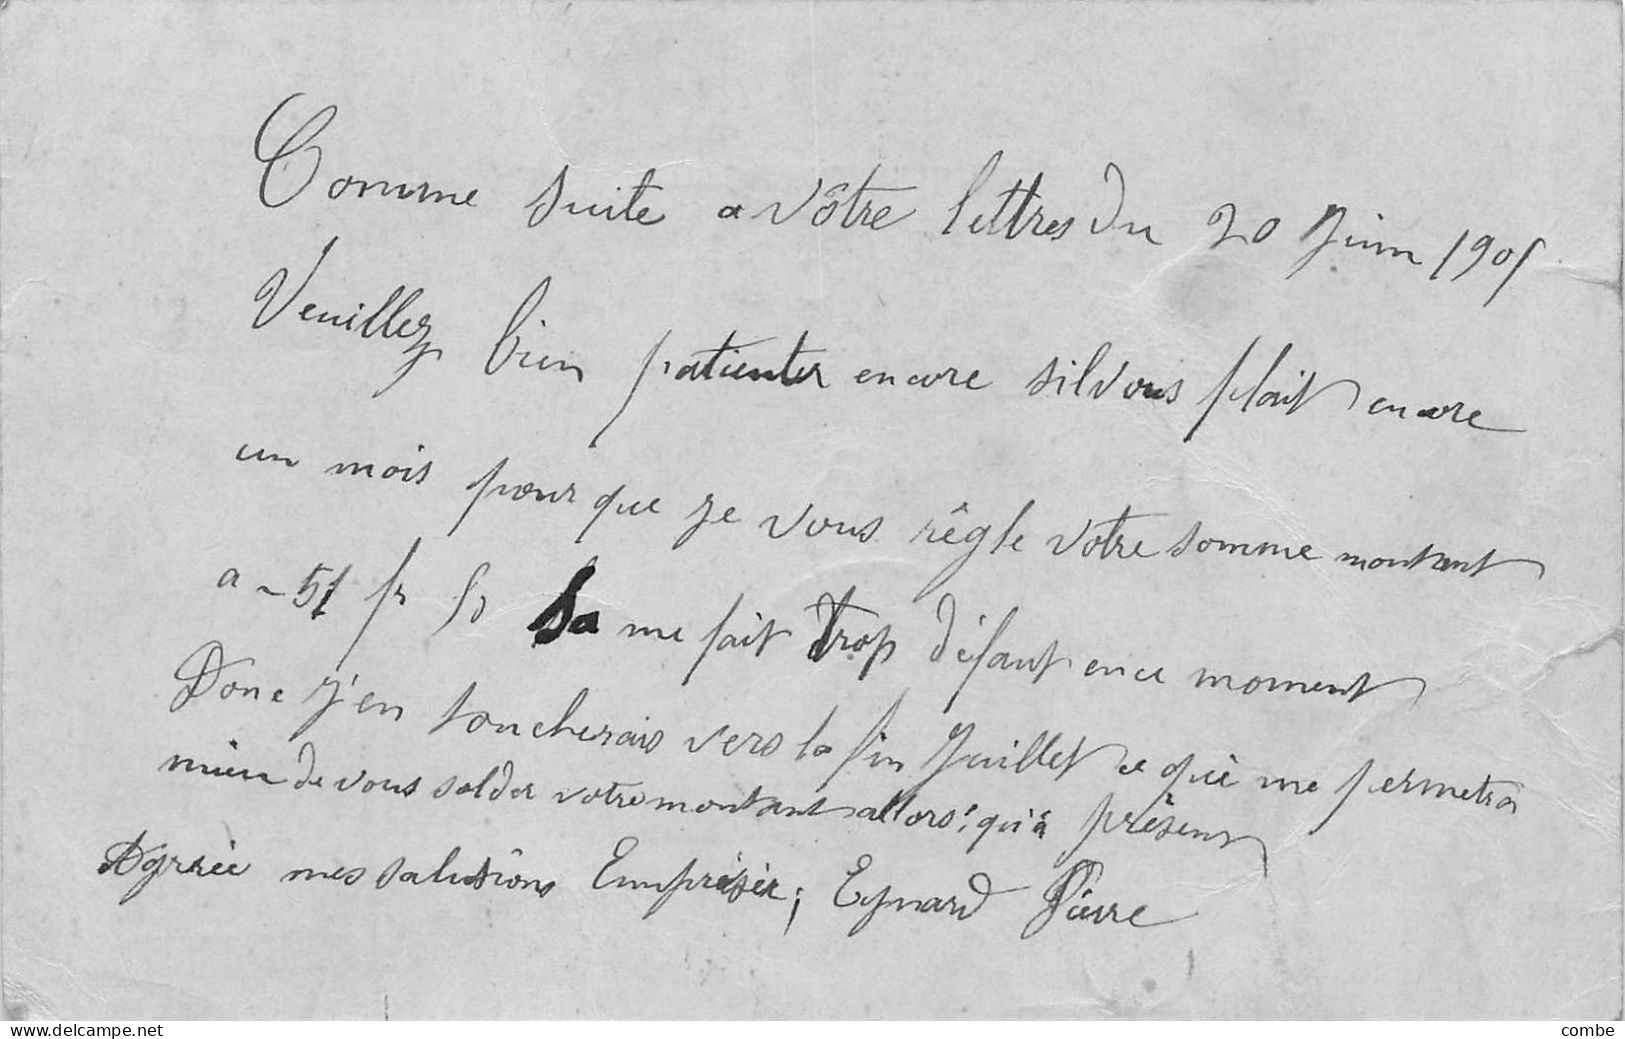 Comme suite a vôtre lettres du 20 Juin 1905
Veuillez bien patienter encore silvous plait encore
un mois pour que je vous rêgle votre somme montant
a - 51 fr 50 Sa me fait trop défaut en ce moment
Donc j'en toucherais vers la fin Juillet ce qui me permetra
mieu de vous solder votre montant allors qu'à présent
Agréée mes salutiôns Emprésér; Eynard Pierre
www.delcampe.net
combe